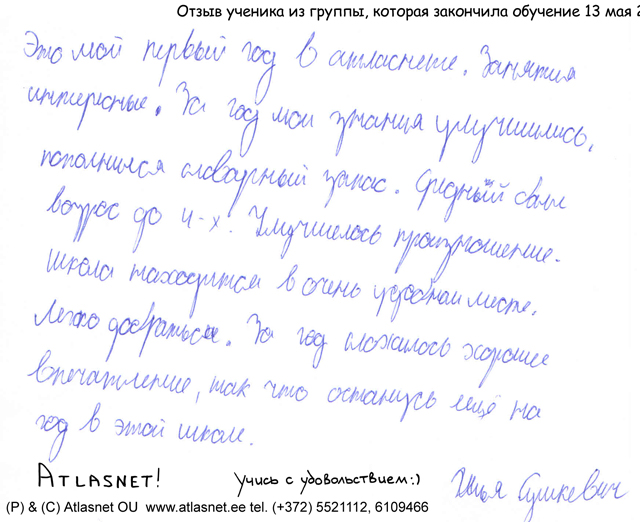 Отзыв ученика из группы, которая закончила обучение 13 мая 2
Это мой первый год в атласнете. Занятия
интересные. За год мои знания улучшились,
пополнился словарный запас. Средный балл
возрос до 4-х! Улучшелось произношение.
Школа находится в очень удобном месте.
Легко добраться. За год сложилось хорошее
впечатление, так что останусь ещё на
год в этой школе.
ATLASNET! Учись с удовольствием:) Илья Сушкевич
(P) & (C) Atlasnet OU www.atlasnet.ee tel. (+372) 5521112, 6109466